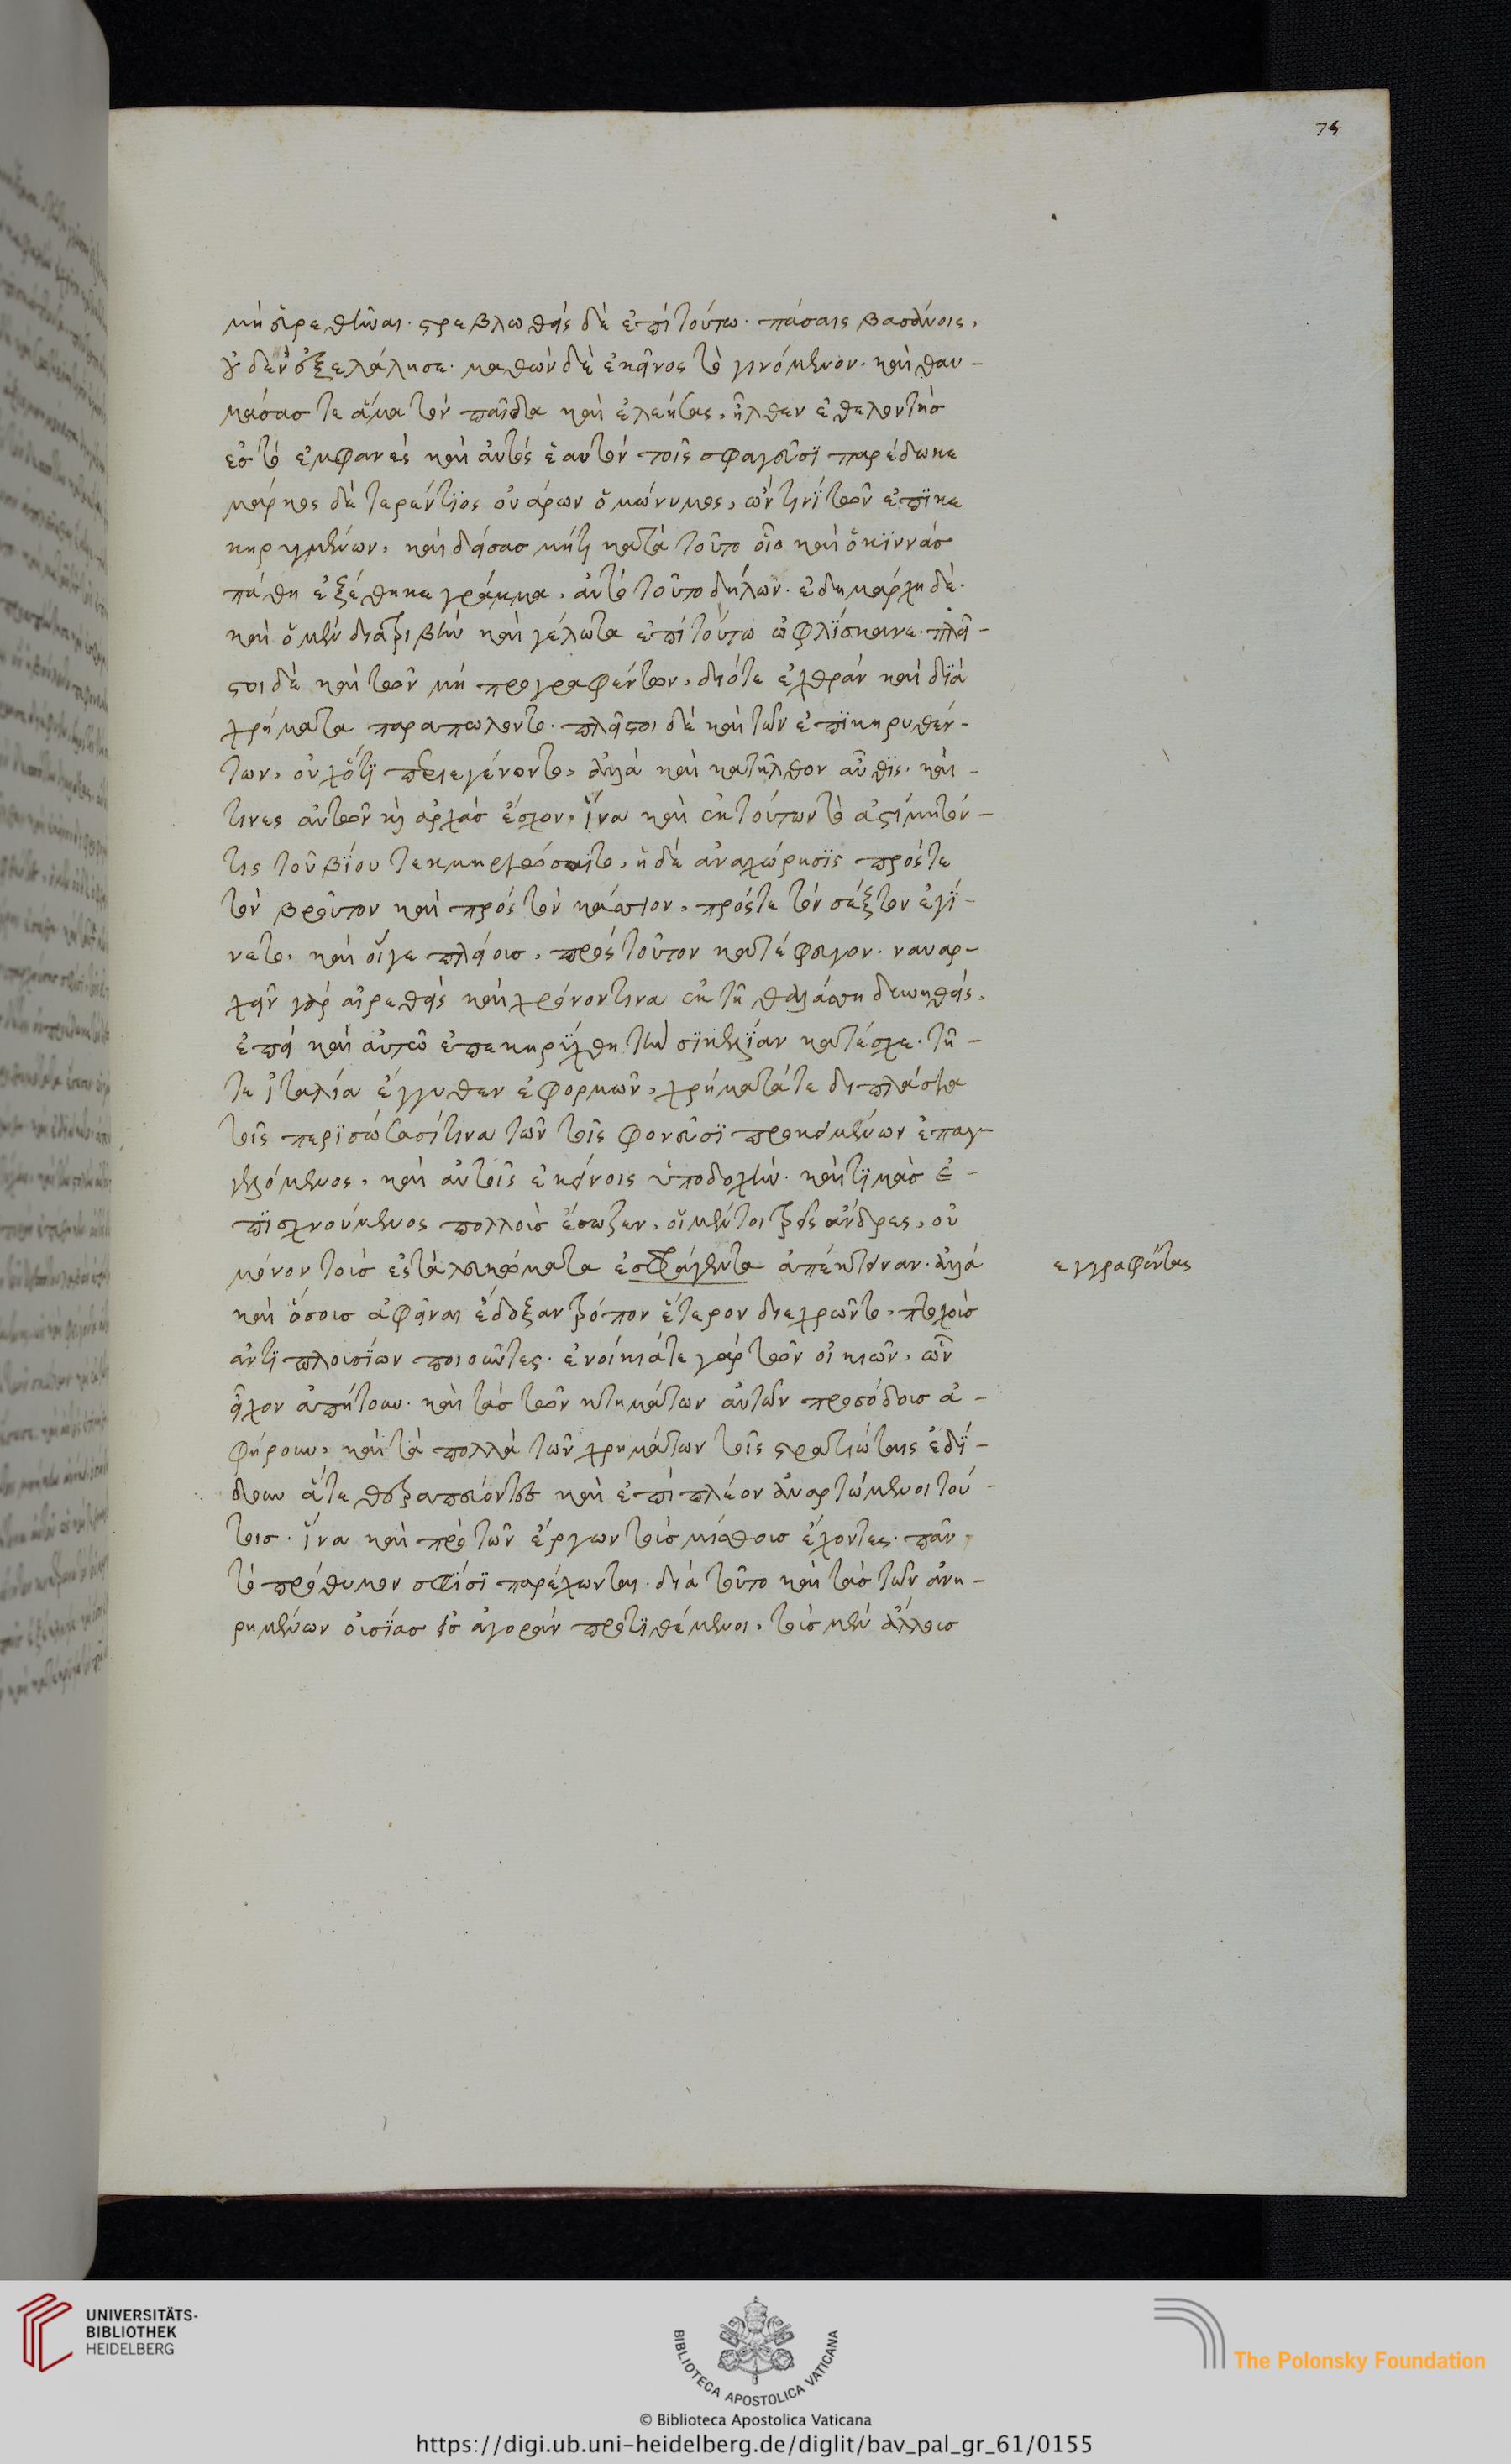 75
μὴ εὑρεθῆναι· στρεβλωθεὶς δὲ ἐπὶ τούτω· πάσαις βασάνοις,
οὐδὲν ἐξελάλησε· μαθὼν δὲ ἐκεῖνος τὸ γινόμενον· καὶ θαυ-
μάσας τε ἅμα τὸν παῖδα καὶ ἐλεήσας, ἦλθεν ἐθελοντὴς
ἐς τὸ ἐμφανὲς καὶ αὐτὸς ἑαυτὸν τοῖς σφαγεῦσϊ παρέδωκε
μάρκος δὲ τερέντϊος οὐάρων ὁμώνυμος, ὤν τινϊ τῶν ἐπϊκε
κηρυγμένων, καὶ δείσας μήτι κατὰ τοῦτο οἷο καὶ ὁ κϊννάς
πάθη ἐξέθηκε γράμμα, αὐτὸ τοῦτο δηλῶν· ἐδημάρχη δὲ·
καὶ ὁ μὲν διατριβὴν καὶ γέλωτα ἐπὶ τούτω ὠφλϊσκανε· πλεῖ-
στοι δὲ καὶ τῶν μὴ προγραφέντων, διότε ἐχθρὰν καὶ δϊὰ
χρήματα παραπώλοντο· πλεῖστοι δὲ καὶ τῶν ἐπϊκηρυθέν-
των, οὐχ ὅτϊ περιεγένοντο, ἀλλὰ καὶ κατῆλθον αὖθϊς· καὶ-
τινες αὐτῶν καὶ ἀρχὰς ἔσχον, ἵνα καὶ ἐκ τούτων τὸ ἀστάμητόν-
τις τοῦ βϊου τεκμηριώσαιτο, ἡ δὲ ἀναχώρησϊς πρός τε
τὸν βροῦτον καὶ πρὸς τὸν κάσσιον, πρός τε τὸν σέξτον ἐγϊ-
νετο, καὶ οἵγε πλείους, πρὸς τοῦτον κατέφυγον· ναυαρ-
χεῖν γὰρ αἱρεθεὶς καὶ χρόνον τινα ἐν τῆ θαλάσση δυνηθεὶς,
ἐπεὶ καὶ αὐτῶ ἐπεκηρύχθη τὴν σϊκελϊαν κατέσχε· τῆ-
τε ἰταλία ἐγγυθεν ἐφορμῶν, χρήματά τε διπλάσια
τοῖς περϊσώσασί τινα τῶν τοῖς φονεῦσϊ προκειμένων ἐπαγ-
γελόμενος, καὶ αὐτοῖς ἐκείνοις ὑποδοχὴν· καὶ τϊμὰς ἐ-
πϊσχνούμενος πολλοὺς ἔσωζεν, οἱ μέντοι τρεῖς ἄνδρες, οὐ
μόνον τοὺς ἐς τὰ λευκώματα ἐσφάγεντα ἀπέκτειναν· ἀλλὰ
εγγραφέντας
καὶ ὅσοις ἀφεῖναι ἔδοξαν τρόπον ἕτερον διεχρῶντο, πτωχοὺς
ἀντϊ πλουσϊων ποιοῦντες· ἐνοίκιά τε γὰρ τῶν οἰκιῶν, ὧν
εἶχον ἀπήτουν· καὶ τὰς τῶν κτημάτων αὐτῶν προσόδους ἀ-
φήρουν, καὶ τὰ πολλὰ τῶν χρημάτων τοῖς στρατιώταις ἐδϊ-
δοσαν ἅτε θεραπεύοντες καὶ ἐπὶ πλέον ἀναρτώμενοι τού-
τους· ἵνα καὶ πρὸ τῶν ἔργων τοὺς μισθοὺς ἔχοντες· πᾶν
τὸ πρόθυμον σφϊσϊ παρέχωνται· διὰ τοῦτο καὶ τὰς τῶν ἀνη-
ρημένων οὐσϊας εἰς ἀγορὰν προτϊθέμενοι, τοὺς μὲν ἄλλους
UNIVERSITÄTS-
BIBLIOTHEK
HEIDELBERG
BIBLIOTECA APOSTOLICA VATICANA
© Biblioteca Apostolica Vaticana
The Polonsky Foundation
https://digi.ub.uni-heidelberg.de/diglit/bav_pal_gr_61/0155